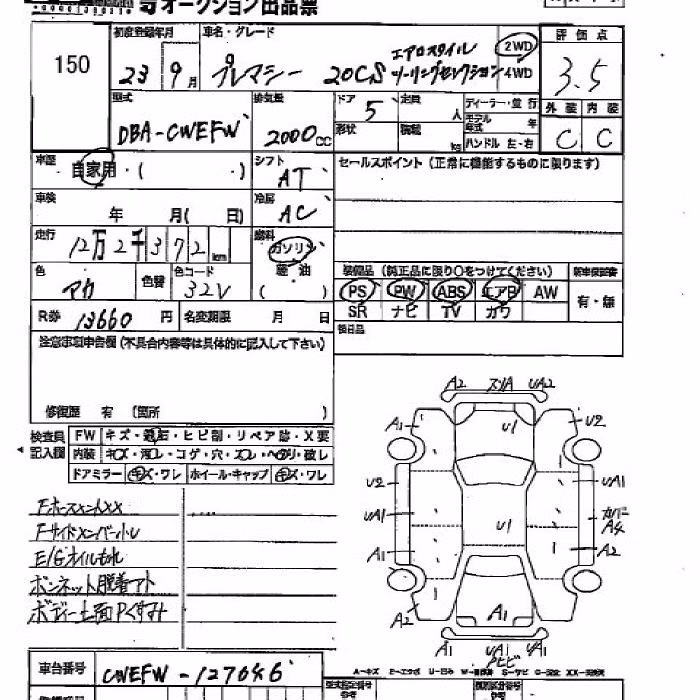 オークション出品票
150
初度登録年月 車名・グレード 評価点
23 9月 プレマシー 20CS エアロスタイル ツーリングセレクション 2WD 4WD 3.5
型式 排気量 ドア 定員 ディーラー・並行 外装 内装
DBA-CWEFW 2000cc 5 人 モデル年式 年 C C
形状 積載 kg ハンドル 左・右
車歴 自家用・( ) シフト AT セールスポイント(正常に機能するものに限ります)
車検 年 月( 日) 冷房 AC
走行 12万2千372km 燃料 ガソリン
軽油
色 アカ 色替 色コード 32V ( )
装備品(純正品に限り○をつけてください) 新車保証書
PS PW ABS エアB AW 有・無
SR ナビ TV カワ
R券 13660円 名変期限 月 日
後日品
注意事項申告欄(不具合内容等は具体的に記入して下さい)
修復歴 有 (箇所 )
検査員記入欄 FW キズ・飛石・ヒビ割・リペア跡・X要
内装 キズ・汚レ・コゲ・穴・スレ・ヘタリ・破レ
ドアミラー キズ・ワレ ホイール・キャップ キズ・ワレ
A2 スリA UA2
A1 U1 U2
U2 UA1
UA1 U1 カバーA4
A1 A2
A2 A1
A1 UA1 UA1
Pヒビ
Fサイドメンバー小U
E/Gオイルもれ
ボンネット脱着アト
ボディー上面Pくすみ
A-キズ
車台番号 CWEFW-127646
型式指定番号 類別区分番号